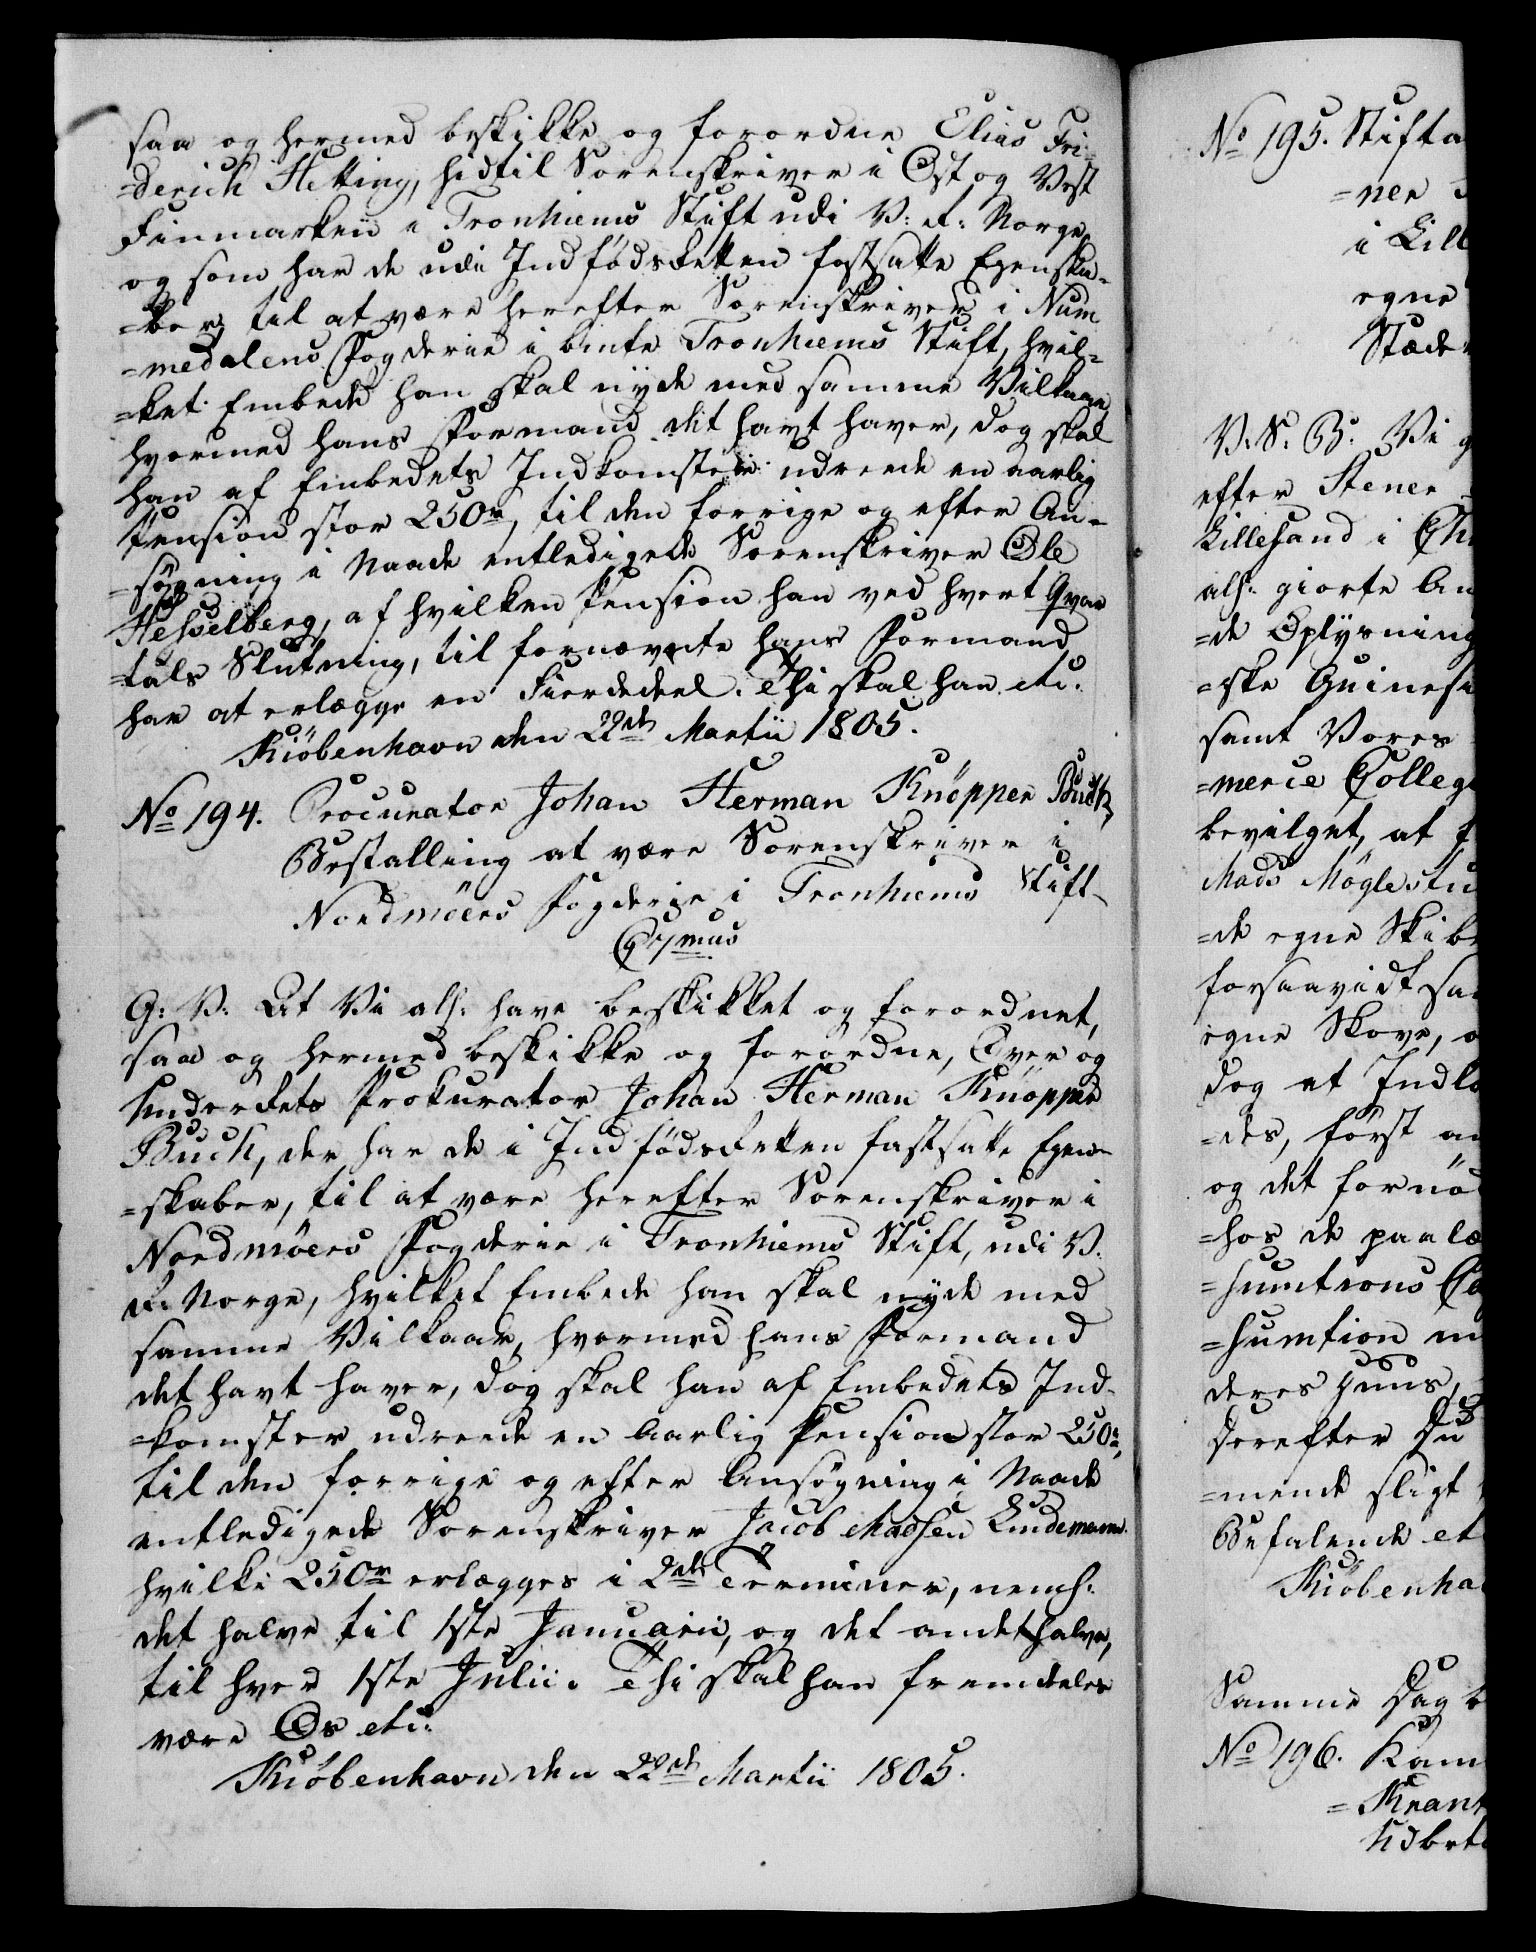 saa og hermed beskikke og forordne Elias Fri-
=derich Hetting, hidtil Sorenskriver i Ost og Vest
Finmarken i Tronhiems Stift udi V: R: Norge,
og som har de udi Indfødsretten fastsatte Egenska-
=ber, til at være herefter Sorenskriver i Num
=medalens Fogderie i bmte Tronhiems Stift, hvil=
=ket Embede han skal nyde med samme Vilkaar,
hvormed hans Formand det havt haver, dog skal
han af Embedets Indkomster udreede en aarlig
Pension stor 250r, til den forrige og efter An-
=søgning i Naade entledigede Sorenskriver Ole
Hesselberg, af hvilken Pension han ved hvert Qvar
=tals Slutning, til fornævnte hans Formand
har at erlægge en Fierdedeel. Thi skal han etc.
Kiöbenhavn den 22de Martii 1805.
No 194. Procurator Johan Herman Knöpper Buch,
Bestalling at være Sorenskriver i
Nordmöers Fogderie i Tronhiems Stift
C 7mus
G: V: At Vi als: have beskikket og forordnet,
saa og hermed beskikke og forordne, Over og
Underrets Prokurator Johan Herman Knöpper
Buch, der har de i Indfødsretten fastsatte Egen-
=skaber, til at være herefter Sorenskriver i
Nordmöers Fogderie i Tronhiems Stift, udi V.
R: Norge, hvilket Embede han skal nyde med
samme Vilkaar, hvormed hans Formand
det havt haver, dog skal han af Embedets Ind-
=komster udreede en aarlig Pension stor 250r,
til den forrige og efter Ansøgning i Naade
entledigede Sorenskriver Jacob Madsen Lindemann.
hvilke 250r erlægges i 2de Terminer, neml:
det halve til 1ste Januarii, og det andet halve,
til hver 1ste Julii. Thi skal han fremdeles
være Os etc.
Kiöbenhavn den 22de Martii 1805.
No 195. Stifta
=ner
i Lill
egne
Stæder
V. S. B. Vi g
efter Stener
Lillesand i Ch
als: giorte An
=de Oplysning
=ske Guinesi
samt Vores
=merce Colleg
bevilget, at
Mads Möglestu
=de egne Skibe
forsaavidt sa
egne Skove, o
dog at Indl
=des, först an
og det fornö
=hos de paalæ
=sumtions Co
=sumtion m
deres Huus,
derefter Du
=mende sligt
Befalende et
Kiöbenha
Samme Dag b
No 196. Kam
=Krant